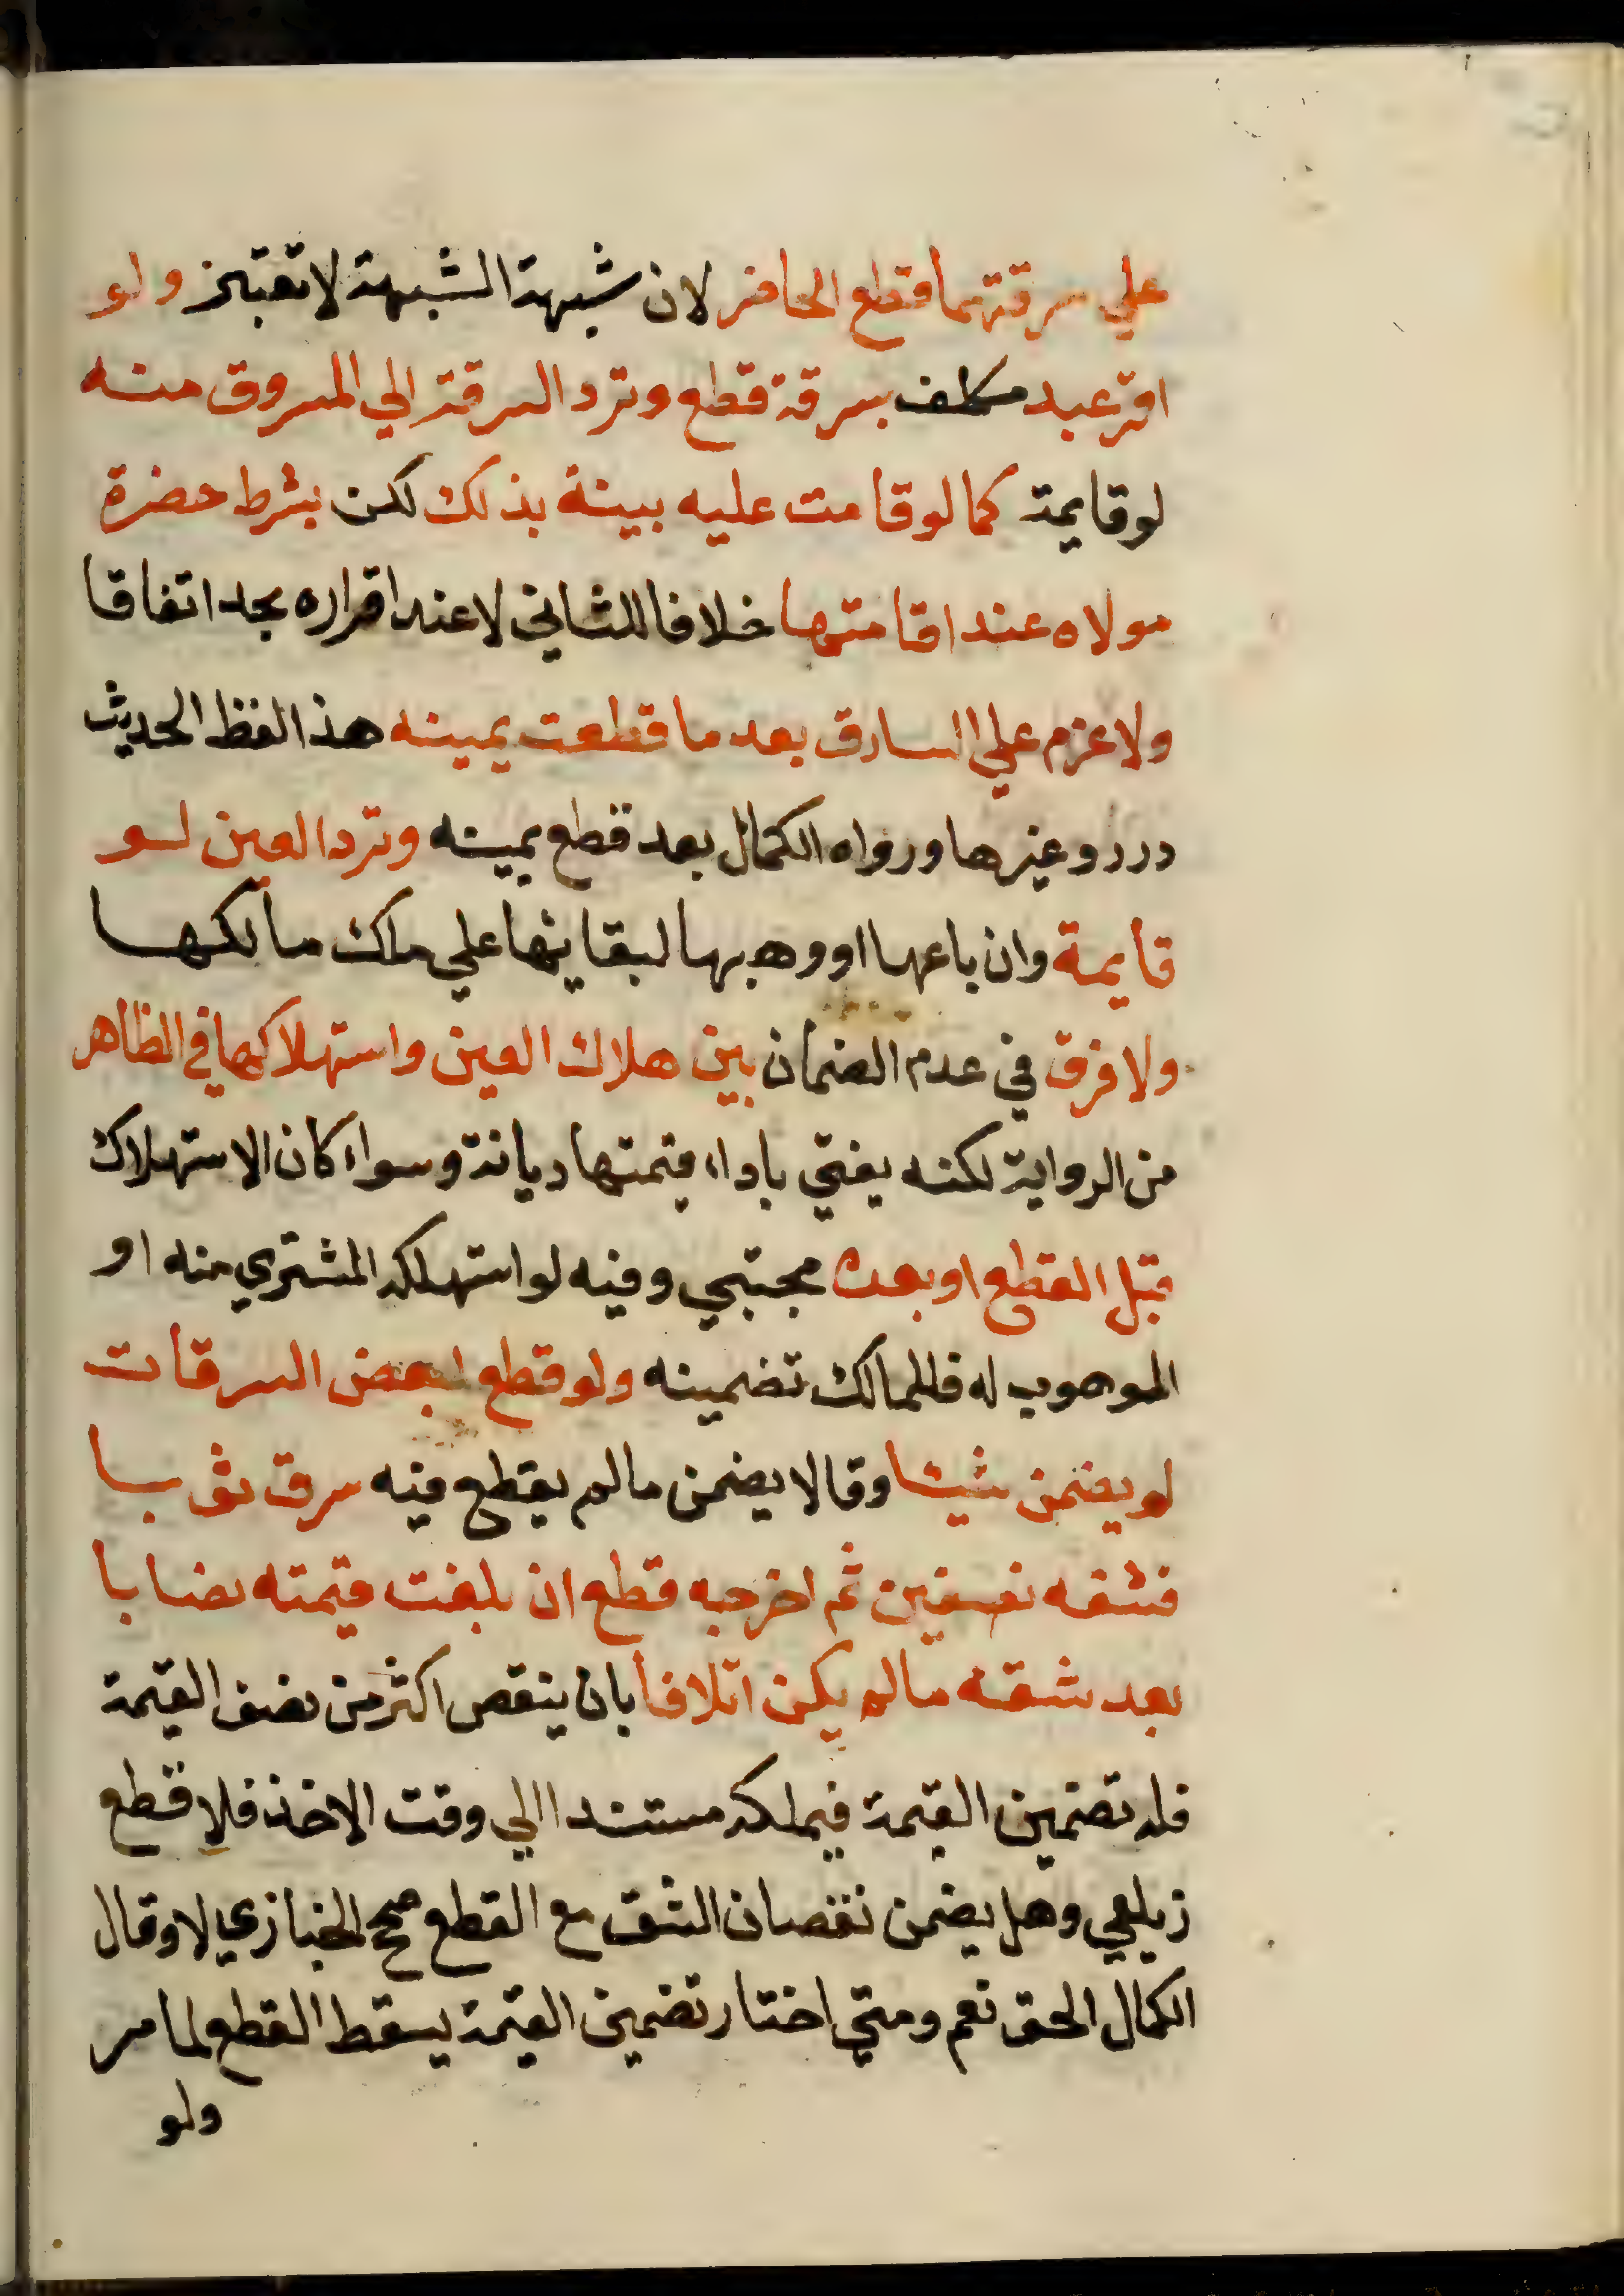 علي سرقتهما قطع الحاضر لان شبهة الشبهة لا تعتبر ولو
اقر عبد مكلف بسرقة قطع وترد السرقة الي المسروق منه
لو قايمة كما لو قامت عليه بينة بذلك لكن بشرط حضرة
مولاه عند اقامتها خلافا للثاني لا عند اقراره بحد اتفاقا
ولا غرم علي السارق بعد ما قطعت يمينه هذا لفظ الحديث
درر وغيرها ورواه الكمال بعد قطع يمينه وترد العين لو
قايمة وان باعها او وهبها لبقاينها علي ملك مالكها
ولا فرق في عدم الضمان بين هلاك العين واستهلاكها في الظاهر
من الرواية لكنه يفتي باداء قيمتها ديانة وسواء كان الاستهلاك
قبل القطع او بعده مجتبي وفيه لو استهلكه المشتري منه او
الموهوب له فللمالك تضمينه ولو قطع لبعض السرقات
لو يضمن شيئا وقالا يضمن ما لم يقطع فيه سرق ثوبا
فشقه نصفين ثم اخرجه قطع ان بلغت قيمته نصابا
بعد شقه ما لم يكن اتلافا بان ينقص اكثر من نصف القيمة
فله تضمين القيمة فيملكه مستندا الي وقت الاخذ فلا قطع
زيلعي وهل يضمن نقصان الشق مع القطع صحح الخبازي لا وقال
الكمال الحق نعم ومتي اختار تضمين القيمة يسقط القطع لما مر
ولو